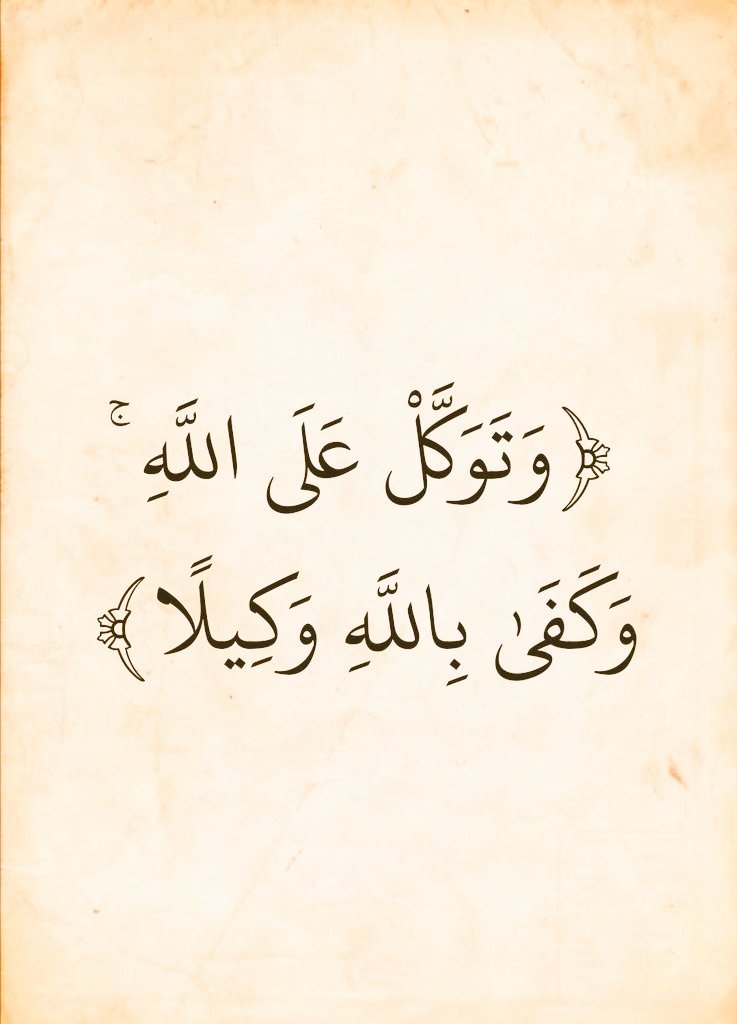 ﴿ وَتَوَكَّلْ عَلَى اللَّهِ ۚ
وَكَفَىٰ بِاللَّهِ وَكِيلًا ﴾